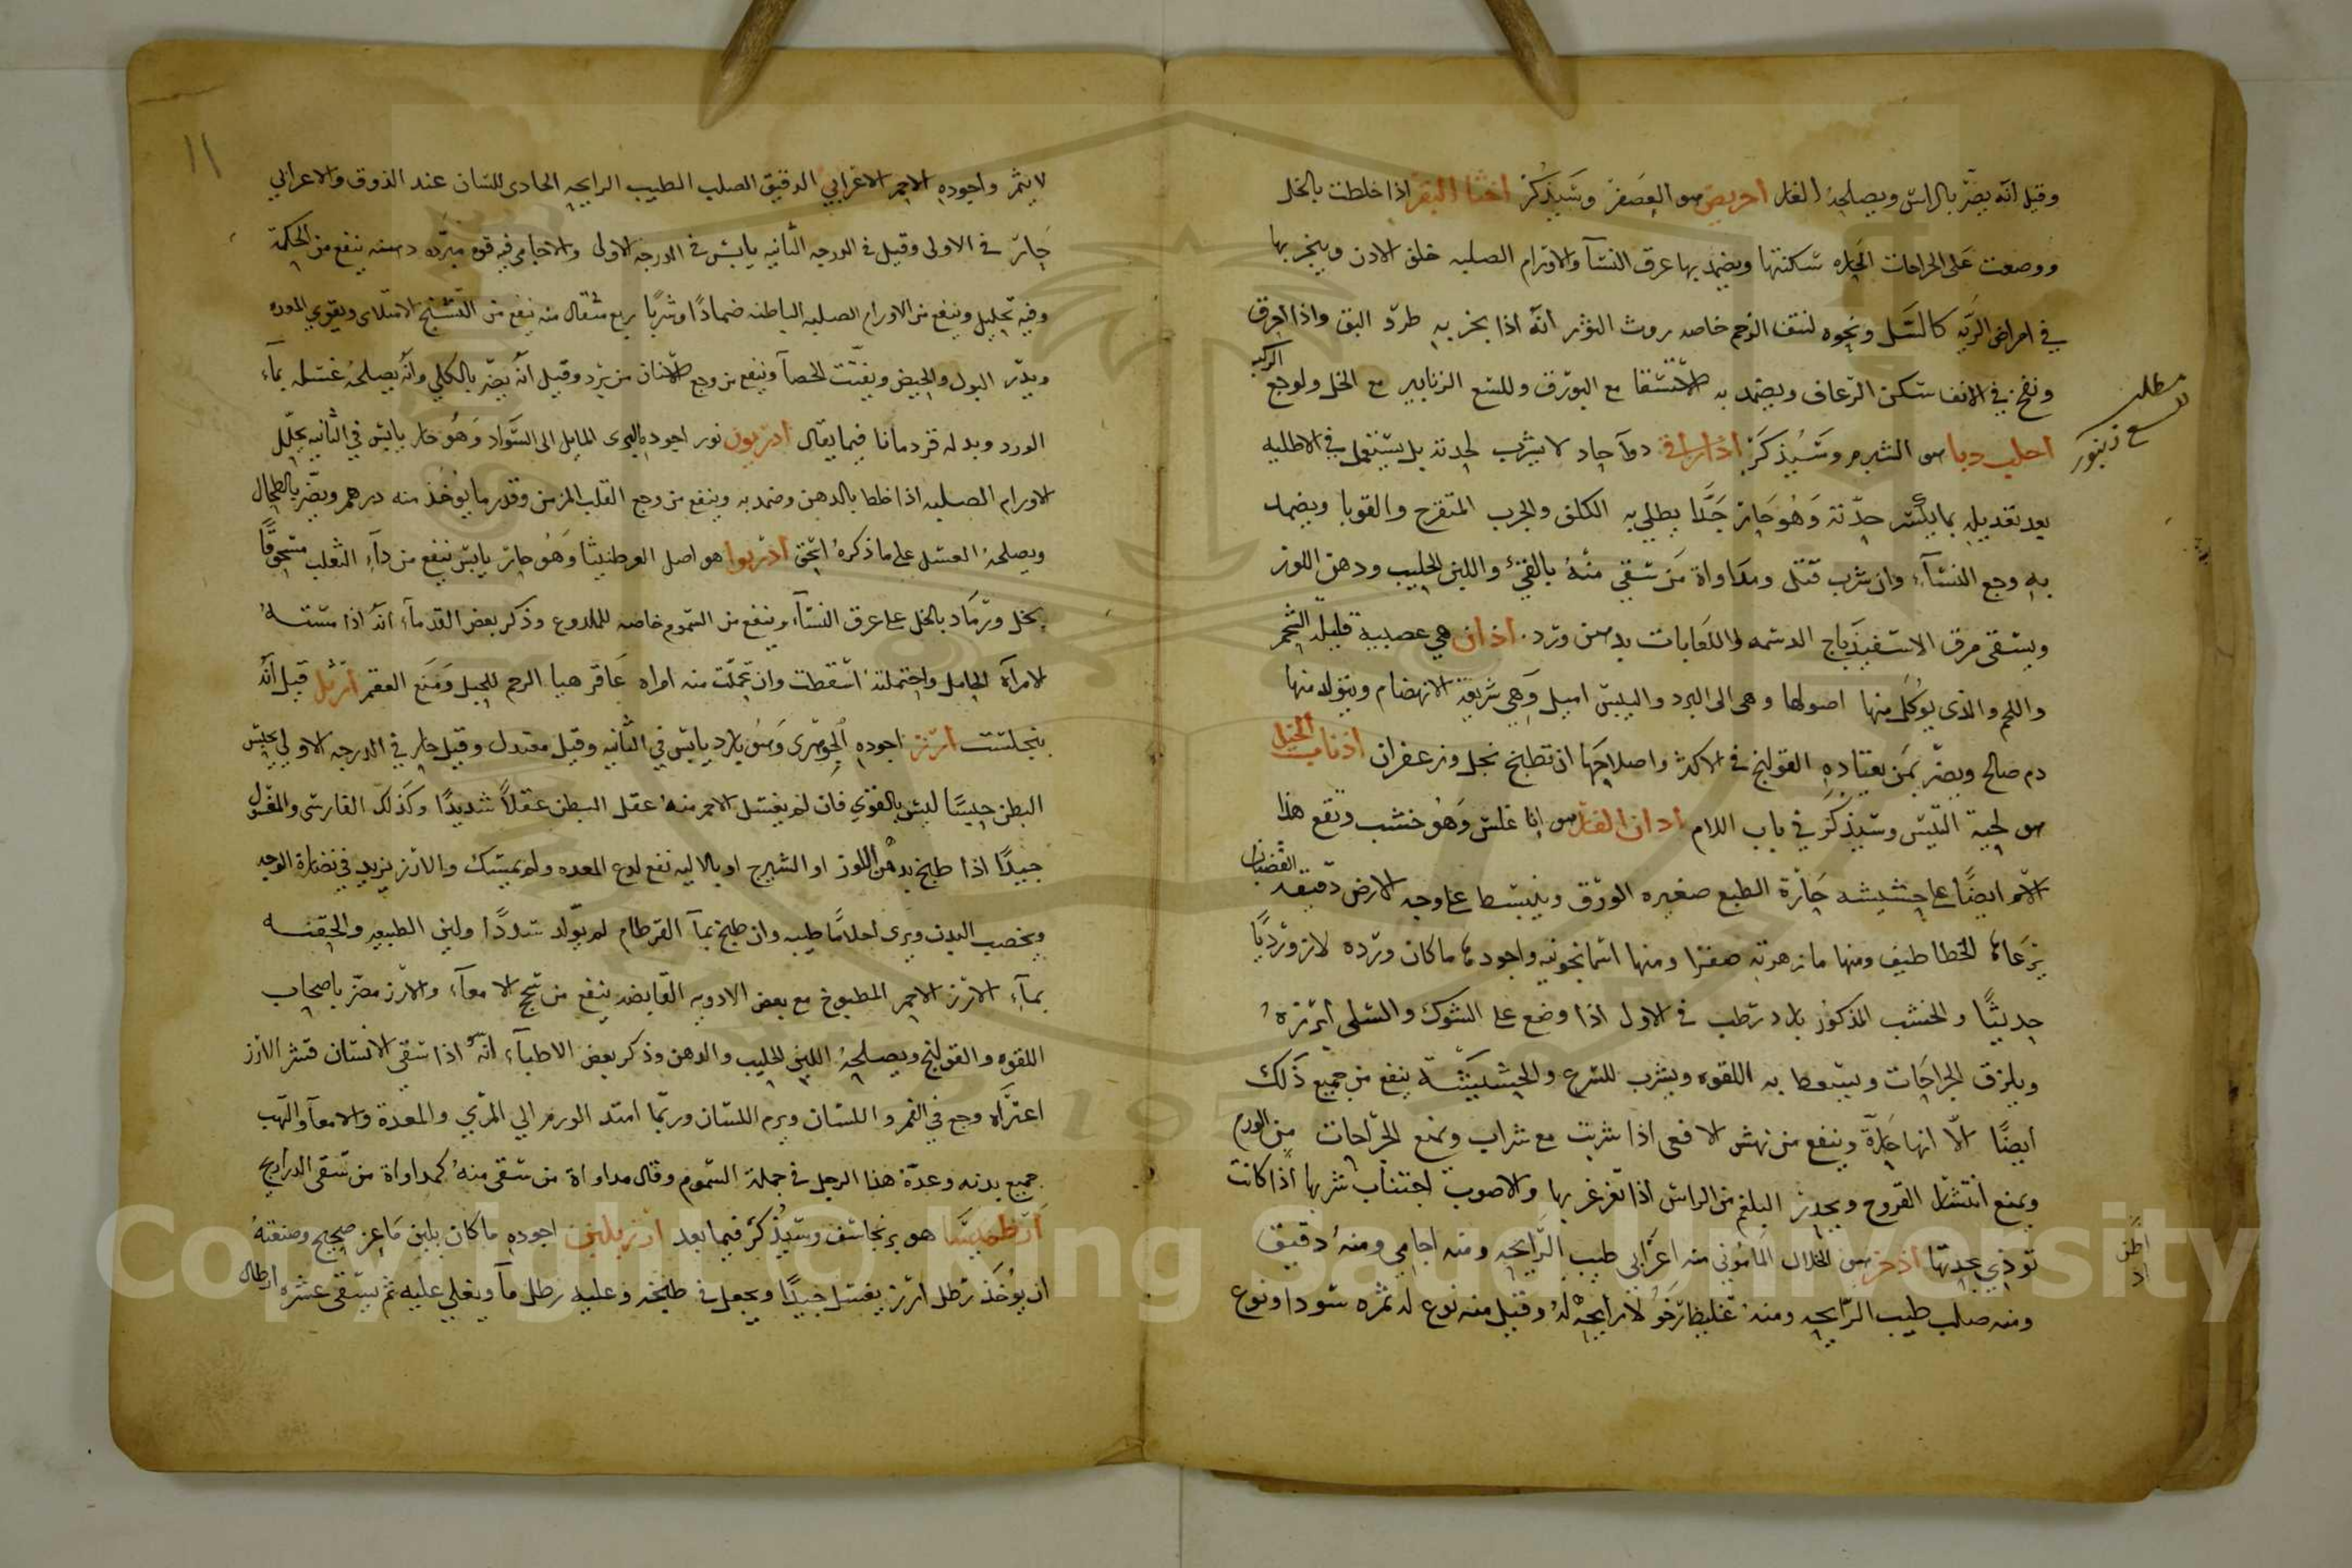 وقيل انه يضر بالراس ويصلحه الغار احريض هو العصفر وسيذكر اخثا البقر اذا خلطت بالخل
ووضعت على الجراحات الحاره سكنتها ويضمد بها عرق النسآ والاورام الصلبه خلف الاذن ويبخر بها
في امراض الريه كالسل ونحوه لنتف الرحم خاصه روث الثور انه اذا بخر به طرد البق واذا احرق
ونفخ في الانف سكن الرعاف ويضمد به الاستسقا مع البورق وللسع الزنابير مع الخل ولوجع الركب
مطلب
لسع زنبور
احليب ديا هو الشبرم وسيذكر اذاراقي دوآ حاد لا يشرب لحدته بل يستعمل في الاطليه
بعد تعديله بما يكسر حدته وهو حار جدًا يطلى به الكلف والجرب المتقرح والقوبا ويضمد
به وجع النسآء وان شرب قتل ومداواة من سقي منه بالقيء واللبن الحليب ودهن اللوز
ويسقى مرق الاسفيذباج الدسمه واللعابات بدهن ورد. اذان هي عصبية قليلة الشحم
واللحم والذي يوكل منها اصولها وهى الى البرد واليبس اميل وهي سريعة الانهضام ويتولد منها
دم صالح ويضر بمن يعتاده القولنج في الاكثر واصلاحها ان تطبخ بخل وزعفران اذناب الخيل
هو لحية التيس وسيذكر في باب اللام اذان الفار هو انا غلس وهو خشب ويقع هذا
الاسم ايضًا على حشيشه حارة الطبع صغيره الورق وينبسط على وجه الارض دقيقه القضبان
يرعاها الخطاطيف ومنها ما زهرته صفرا ومنها اسمانجونيه واجودها ماكان ورده لازورديًا
حديثًا والخشب المذكور بارد رطب في الاول اذا وضع على الشوك والسلى ابرزه
ويلزق الجراحات ويسعط به اللقوه ويشرب للصرع والحشيشة ينفع من جميع ذلك
ايضًا الا انها حارة وينفع من نهش الافعى اذا شربت مع شراب ويمنع الجراحات من الورم
ويمنع انتشار القروح ويحدر البلغم من الراس اذا تغرغر بها والاصوب اجتناب شربها اذا كانت
توذي بحدتها اذخر هو الخلال المامونى منه اعرابي طيب الرايحه ومنه اجامي ومنه دقيق
ومنه صلب طيب الرايحه ومنه غليظ رخو لا رايحة له وقيل منه نوع له ثمره سودا ونوع
١١
لا يثمر واجوده الاحمر الاعرابي الدقيق الصلب الطيب الرايحه الحاذى للسان عند الذوق والاعرابي
حار في الاولى وقيل في الدرجه الثانيه يابس في الدرجه الاولى والاجامي فيه قوه مبرده دهنه ينفع من الحكة
وفيه تحليل وينفع من الاورام الصلبه الباطنه ضمادًا وشربًا ربع مثقال منه ينفع من التشنج الامتلاى ويقوي المعده
ويدر البول والحيض ويفتت الحصآ وينفع من وجع الاسنان من برد وقيل انه يضر بالكلى وانه يصلحه غسله بمآء
الورد وبدله قردمانا فيما يقال اذريون نور اجوده البري المايل الى السواد وهو حار يابس في الثانيه يحلل
الاورام الصلبه اذا خلط بالدهن وضمد به وينفع من وجع القلب المزمن وقدر ما يوخذ منه درهم ويضر بالطحال
ويصلحه العسل على ما ذكره اسحق اذربوا هو اصل العرطنيثا وهو حار يابس ينفع من دآء الثعلب مسحوقًا
بخل ورماد بالخل على عرق النسآ وينفع من السموم خاصه للملدوغ وذكر بعض القدمآء انه اذا مسته
الامرآة الحامل واحتملته اسقطت وان تحملت منه امراه عاقر هيا الرحم للحبل ومنع العقم ارثل قيل انه
بنجلست ارز اجوده الجوهرى وهو بارد يابس في الثانيه وقيل معتدل وقيل حار في الدرجه الاولى يحبس
البطن حبسًا ليس بالقوي فان لم يغسل الاحمر منه عقل البطن عقلًا شديدًا وكذلك الفارسى والمغسول
جيدًا اذا طبخ بدهن اللوز او الشيرج او بالاليه نفع لدع المعده ولم يمسك والارز يزيد في نضارة الوجه
ويخصب البدن ويرى احلامًا طيبه وان طبخ بمآ القرطام لم يولد سددًا ولين الطبيعه والحقنه
بمآء الارز الاحمر المطبوخ مع بعض الادويه القابضه ينفع من سحج الامعآء والارز مضر باصحاب
اللقوه والقولنج ويصلحه اللبن الحليب والدهن وذكر بعض الاطبآء انه اذا سقي الانسان قشر الارز
اعتراه وجع في الفم واللسان وبرم اللسان وربما امتد الورم الي المري والمعدة والامعآ والتهب
جميع بدنه وعدة هذا الرجل في جملة السموم وقال مداواة من سقي منه كمداواة من سقى الدراريح
ارطميسا هو برنجاسف وسيذكر فيما بعد ارز بلبن اجوده ماكان بلبن ماعز صحيح وصنعته
ان يوخذ رطل ارز يغسل جيدًا ويجعل في طنجره وعليه رطل مآ ويغلي عليه ثم يسقى عشره ارطال
Copyright © King Saud University